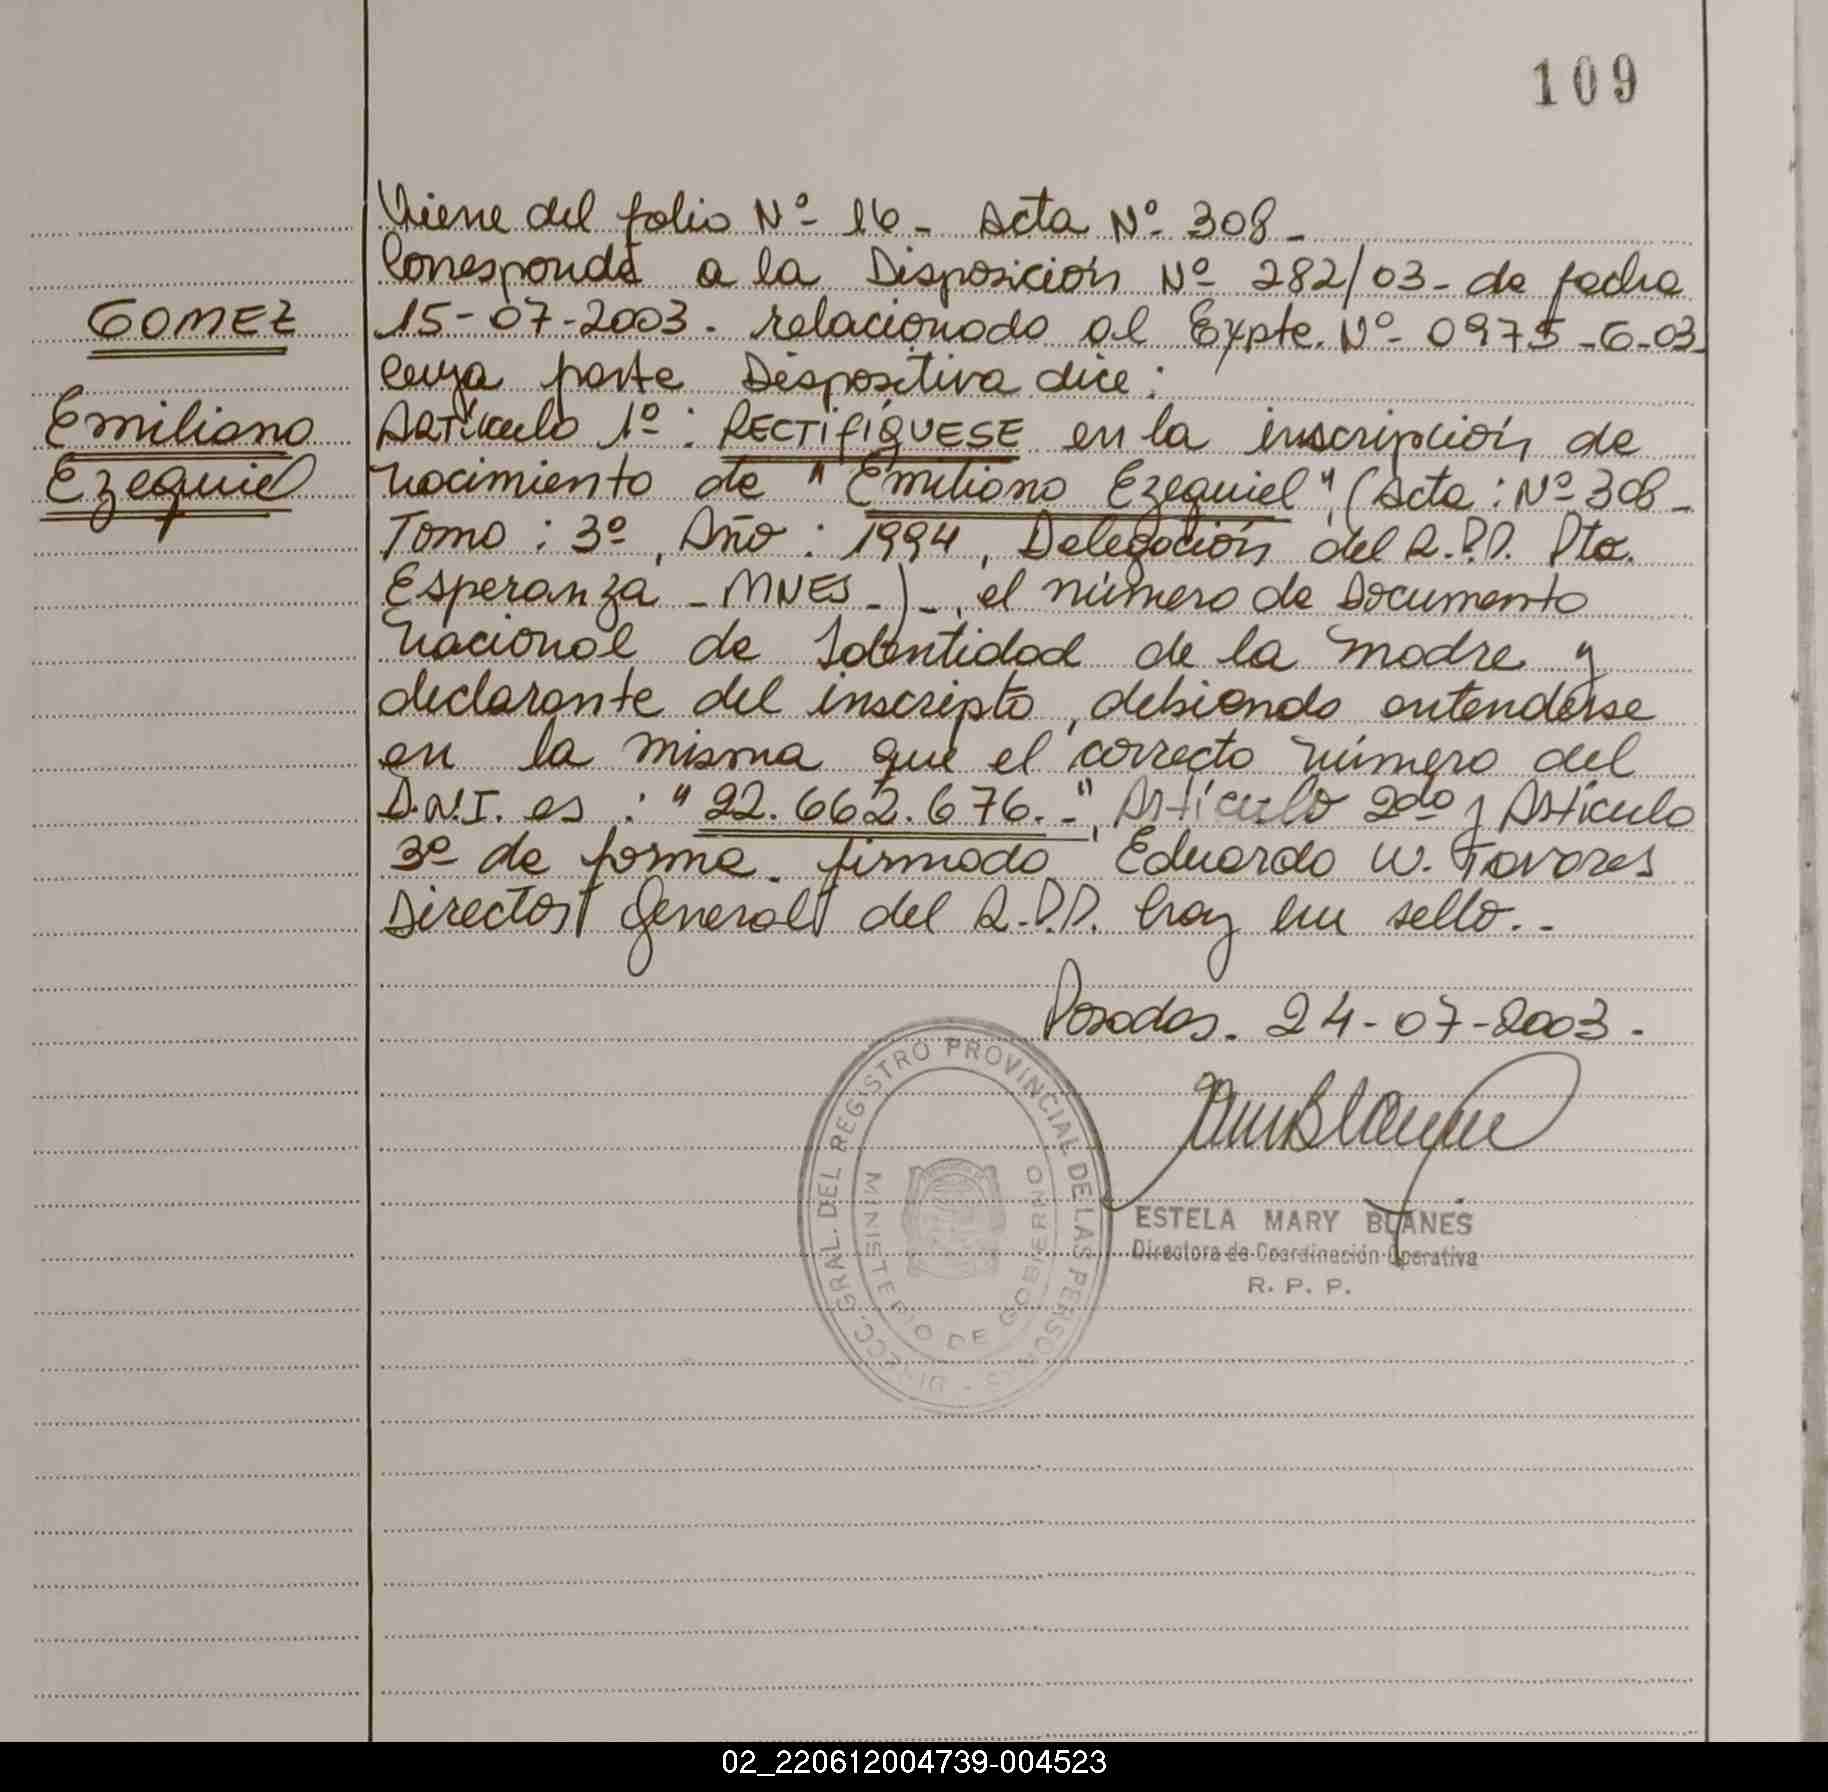 109
Viene del folio Nº 16 - Acta Nº 308 -
Corresponde a la Disposición Nº 282/03 - de fecha
GOMEZ
15-07-2003. relacionado al Expte. Nº 0975-G-03
cuya parte Dispositiva dice:
Emiliano
Artículo 1º: RECTIFÍQUESE en la inscripción de
Ezequiel
nacimiento de "Emiliano Ezequiel", (Acta: Nº 308 -
Tomo: 3º, Año: 1994, Delegación del R.P.P. Pto.
Esperanza - MNES -) -, el número de Documento
Nacional de Identidad de la madre y
declarante del inscripto, debiendo entenderse
en la misma que el correcto número del
D.N.I. es: "22.662.676.-", Artículo 2do y Artículo
3º de forma. firmado Eduardo W. Tavares
Director General del R.P.P. hay un sello. -
Posadas. 24-07-2003.
DIRECC. GRAL. DEL REGISTRO PROVINCIAL DE LAS PERSONAS -
MINISTERIO DE GOBIERNO
ESTELA MARY BLANES
Directora de Coordinación Operativa
R. P. P.
02_220612004739-004523